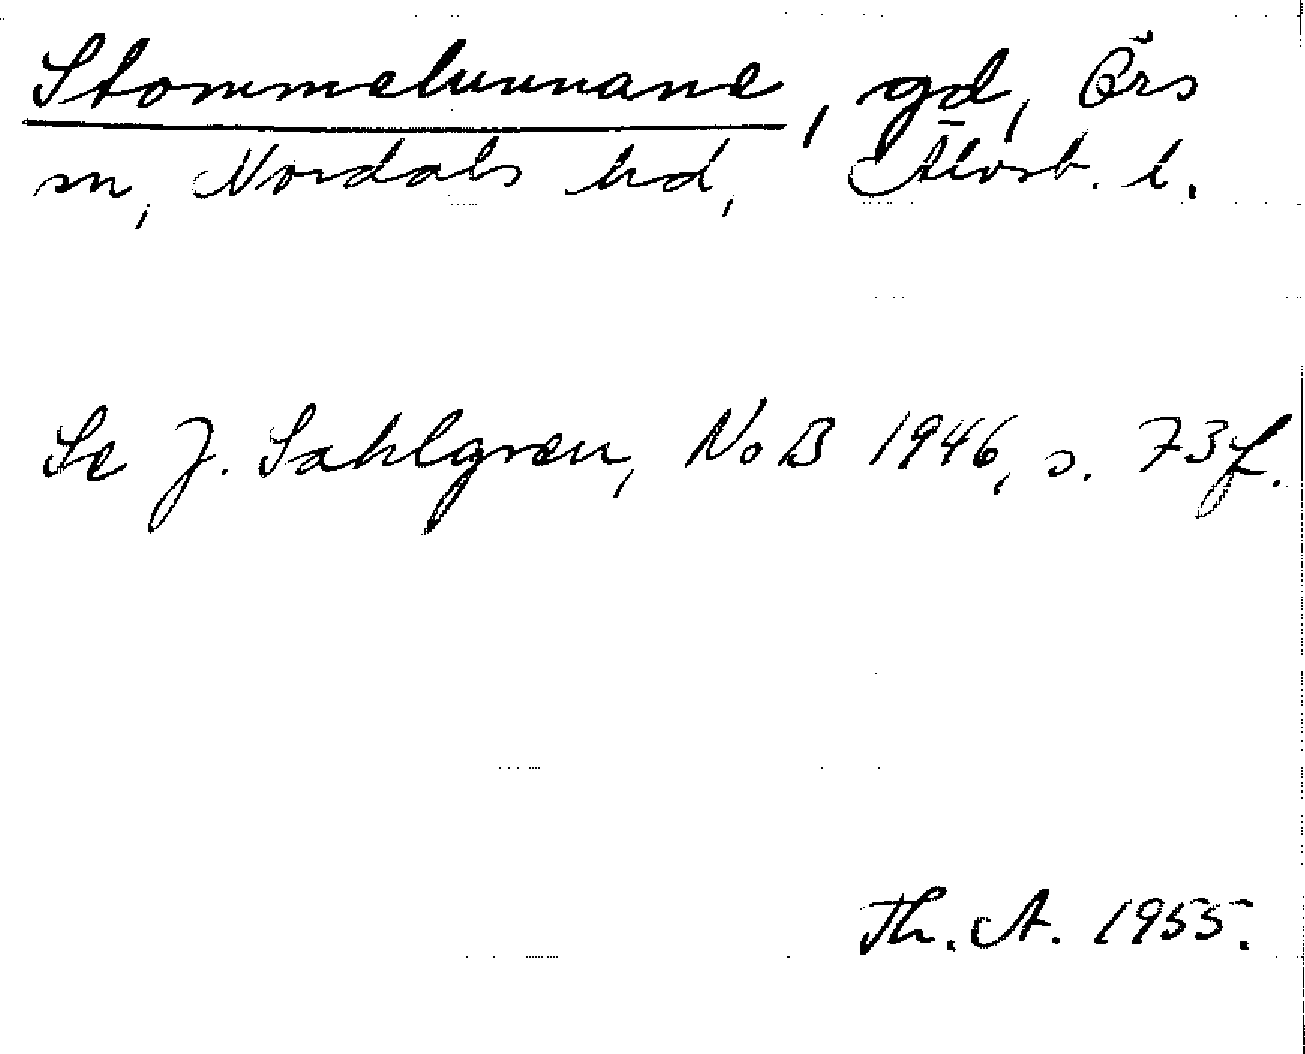 Stommelunnane, gd, Örs
sn, Nordals hd, Älvsb. l.
Se J. Sahlgren, NoB 1946, s. 73f.
Th. A. 1955.